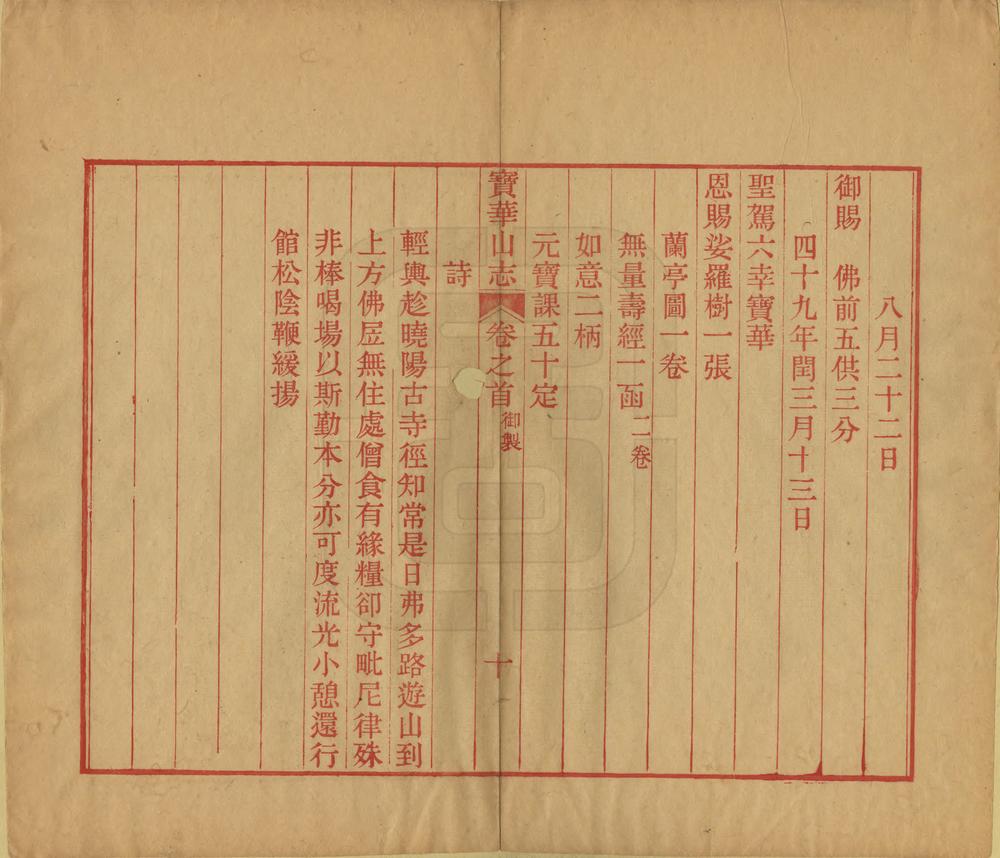 八月二十二日
御賜　佛前五供三分
四十九年閏三月十三日
聖駕六幸寶華
恩賜娑羅樹一張
蘭亭圖一卷
無量壽經一函二卷
如意二柄
元寶課五十定
寶華山志　卷之首　御製　十
詩
輕輿趁曉陽古寺徑知常是日弗多路遊山到
上方佛㞐無住處僧食有緣糧卻守毗尼律殊
非棒喝場以斯勤本分亦可度流光小憩還行
館松陰鞭緩揚